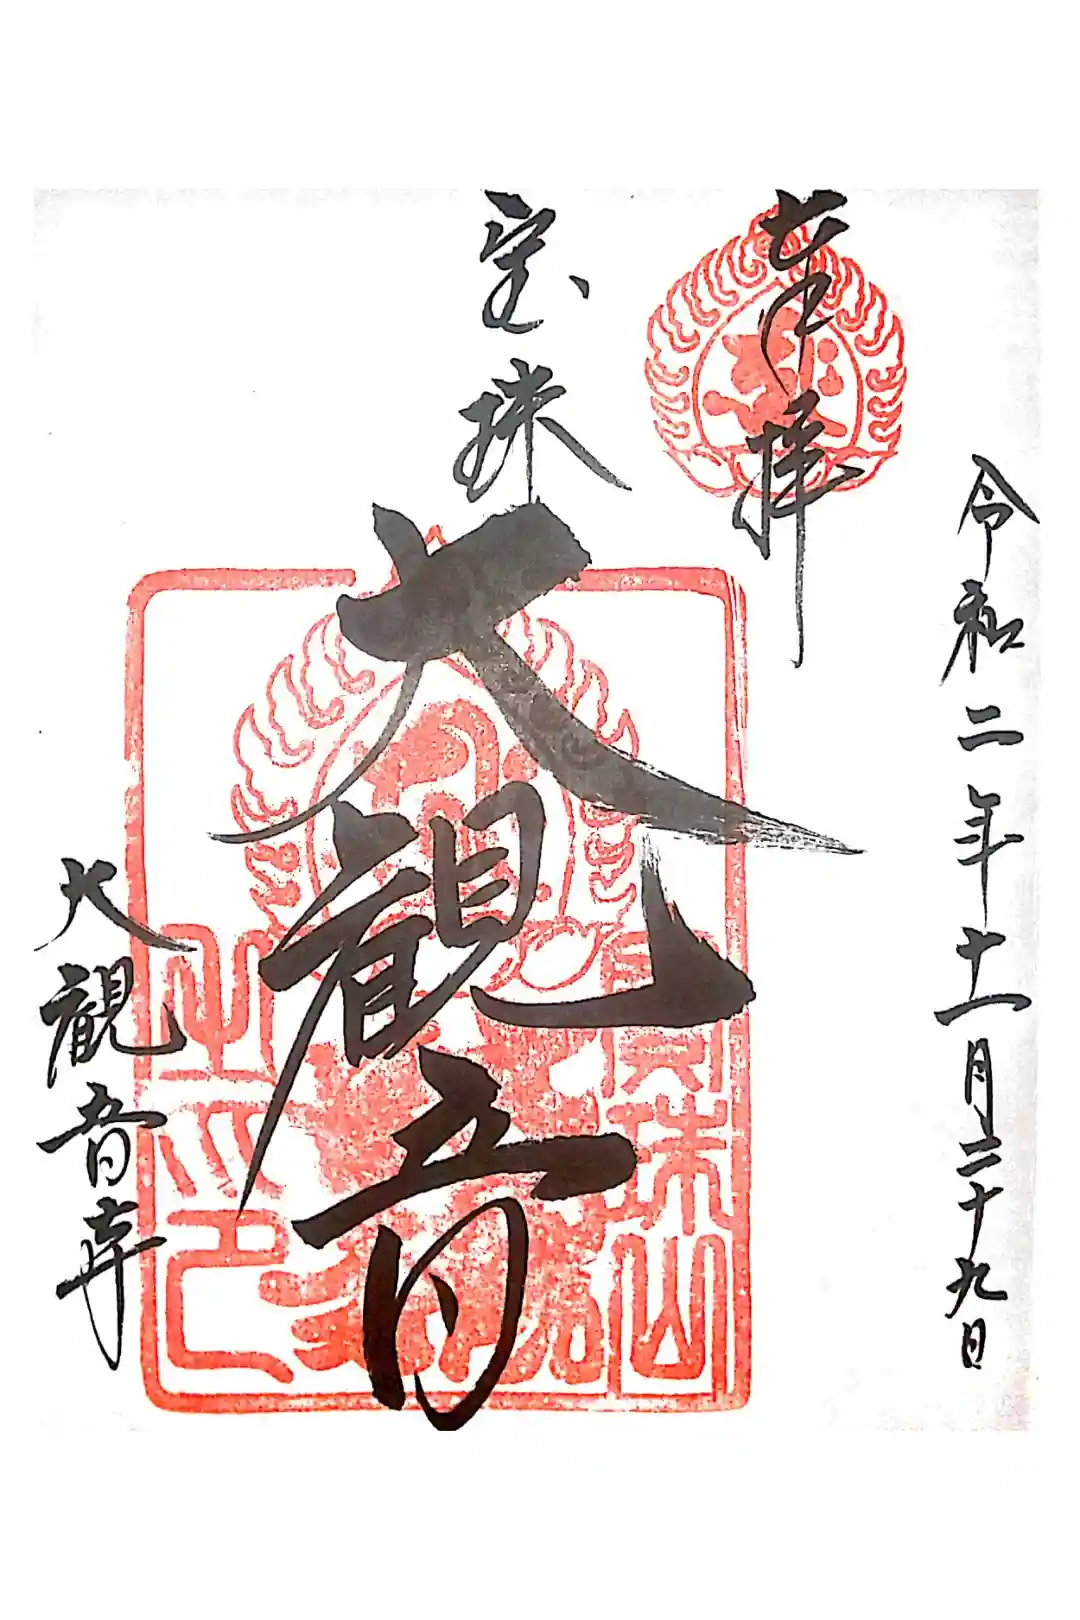 奉拝
令和二年十一月二十九日
宝珠
大観音
大観音寺